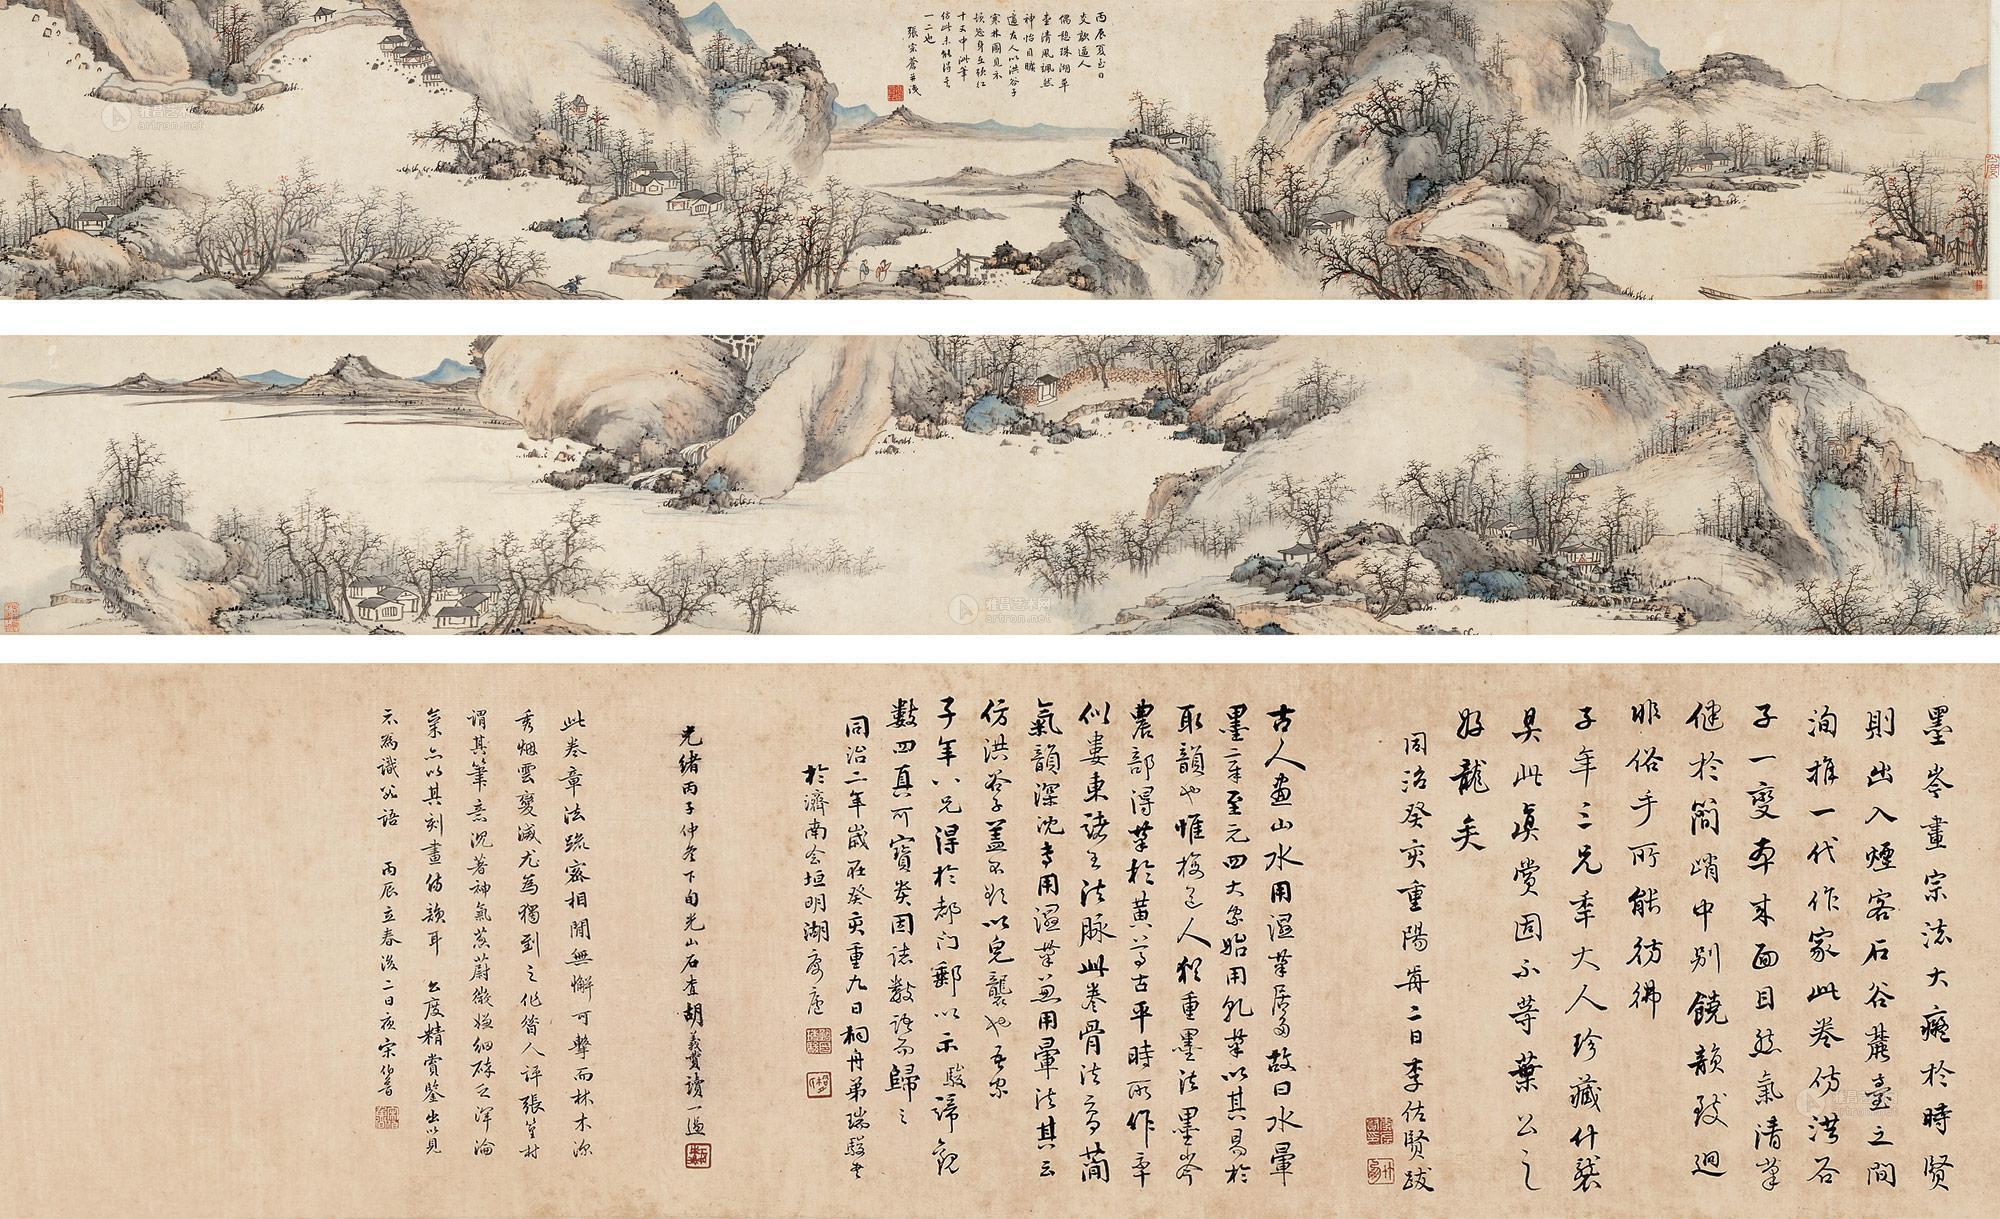 丙辰夏至日
支歗道人
偶憩珠湖草
堂清風颯然
神怡目曠
適友人以洪谷子
寒林圖見示
頓忽身在秋江
十丈中漱筆
仿此未能得其
一二也
張宗蒼并識
墨岑畫宗法大癡於時賢
則出入煙客石谷麓臺之間
洵推一代作家此卷仿洪谷
子一變本來面目然氣清筆
健於簡峭中別饒韻致迥
非俗手所能彷彿
子年三兄年大人珍藏什襲
具此真賞固不等葉公之
好龍矣
同治癸亥重陽前二日李佐賢跋
古人畫山水用濕筆居多故曰水暈
墨章至元四大家始用乾筆以其易於
取韻也惟梅道人猶重墨法墨岑
農部得筆於黃尊古平時所作率
似婁東諸王法脈此卷骨法高簡
氣韻深沈專用濕筆兼用暈法其云
仿洪谷子蓋不欲以皃襲也吾家
子年八兄得於都門郵以示駿諦觀
數四真可寶貴因誌數語而歸之
同治二年歲在癸亥重九日桐舟弟瑞駿書
於濟南會垣明湖寓廬
光緒丙子仲冬下旬光山石查胡義贊讀一過
此卷章法疏密相間無懈可擊而林木深
秀烟雲變滅尤為獨到之作昔人評張篁村
謂其筆意沉著神氣蔥蔚微嫌細碎乏渾淪
氣亦以其刻畫傷韻耳 公度精賞鑒出以見
示為識數語 丙辰立春後二日夜宋伯魯
雅昌艺术网
artron.net